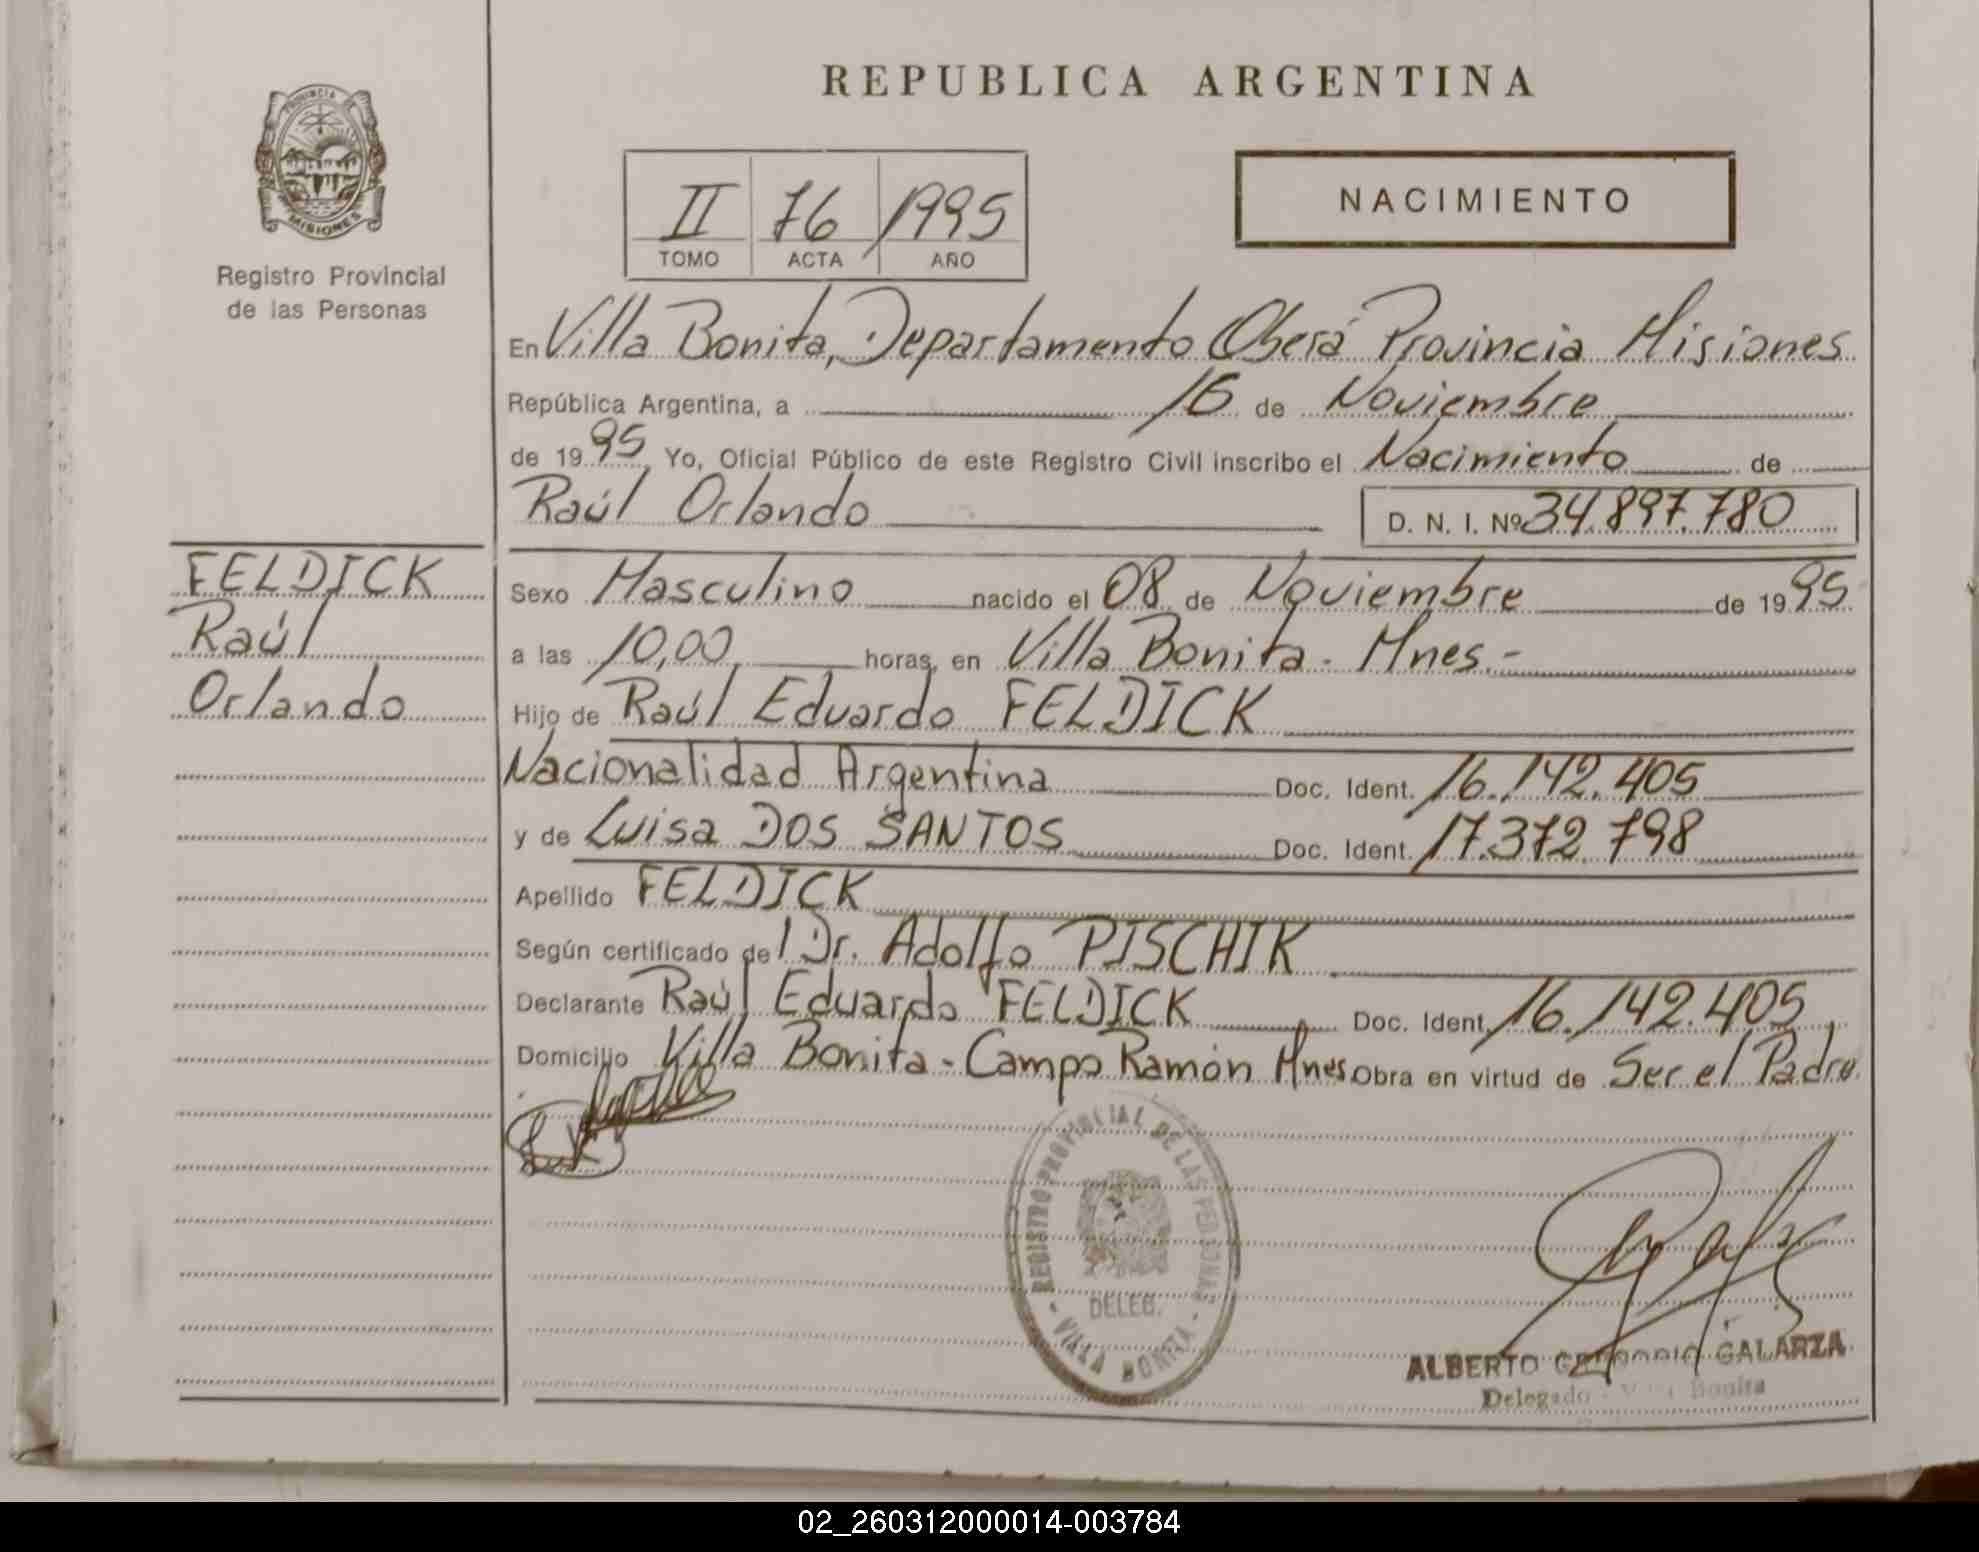 REPUBLICA ARGENTINA
PROVINCIA DE
MISIONES
Registro Provincial
de las Personas
II 76 1995
TOMO ACTA AÑO
NACIMIENTO
En Villa Bonita, Departamento Oberá Provincia Misiones
República Argentina, a 16 de Noviembre
de 1995 Yo, Oficial Público de este Registro Civil inscribo el Nacimiento de
Raúl Orlando D. N. I. Nº 34.897.780
FELDICK
Raúl
Orlando
Sexo Masculino nacido el 08 de Noviembre de 1995
a las 10,00 horas, en Villa Bonita - Mnes.-
Hijo de Raúl Eduardo FELDICK
Nacionalidad Argentina Doc. Ident. 16.142.405
y de Luisa DOS SANTOS Doc. Ident. 17.372.798
Apellido FELDICK
Según certificado del Dr. Adolfo PISCHIK
Declarante Raúl Eduardo FELDICK Doc. Ident. 16.142.405
Domicilio Villa Bonita - Campo Ramón Mnes Obra en virtud de Ser el Padre
REGISTRO PROVINCIAL DE LAS PERSONAS
DELEG.
- VILLA BONITA -
ALBERTO GREGORIO GALARZA
Delegado - Villa Bonita
02_260312000014-003784